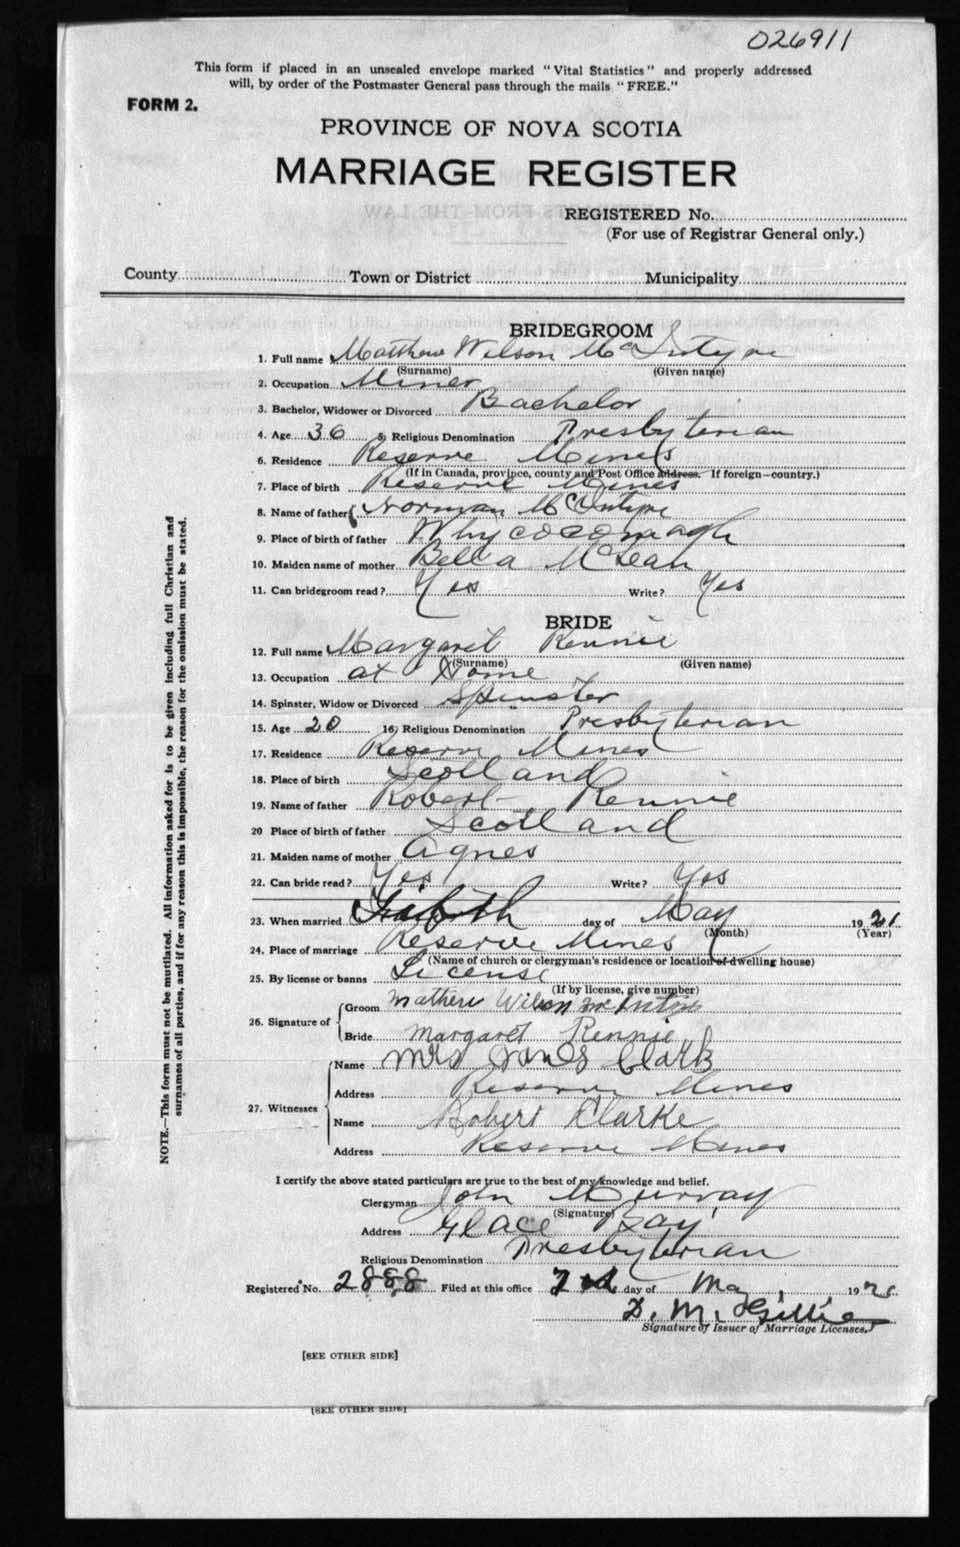 026911
This form if placed in an unsealed envelope marked "Vital Statistics" and properly addressed
will, by order of the Postmaster General pass through the mails "FREE."
FORM 2.
PROVINCE OF NOVA SCOTIA
MARRIAGE REGISTER
REGISTERED No.
(For use of Registrar General only.)
County Town or District Municipality
BRIDEGROOM
1. Full name Matthew Wilson McIntyre
(Surname) (Given name)
2. Occupation Miner
3. Bachelor, Widower or Divorced Bachelor
4. Age 36 5. Religious Denomination Presbyterian
6. Residence Reserve Mines
(If in Canada, province, county and Post Office Address. If foreign—country.)
7. Place of birth Reserve Mines
8. Name of father Norman McIntyre
9. Place of birth of father Whycocomagh
10. Maiden name of mother Bella McLean
11. Can bridegroom read? Yes Write? Yes
BRIDE
12. Full name Margaret Rennie
(Surname) (Given name)
13. Occupation at Home
14. Spinster, Widow or Divorced Spinster
15. Age 20 16. Religious Denomination Presbyterian
17. Residence Reserve Mines
18. Place of birth Scotland
19. Name of father Robert Rennie
20 Place of birth of father Scotland
21. Maiden name of mother Agnes
22. Can bride read? Yes Write? Yes
23. When married day of May 1921
(Month) (Year)
24. Place of marriage Reserve Mines
(Name of church or clergyman's residence or location of dwelling house)
25. By license or banns License
(If by license, give number)
26. Signature of
Groom Wilson
Bride Margaret Rennie
27. Witnesses
Name Mrs James Clark
Address Reserve Mines
Name Robert Clarke
Address Reserve Mines
I certify the above stated particulars are true to the best of my knowledge and belief.
Clergyman John Murray
(Signature)
Address Glace Bay
Religious Denomination Presbyterian
Registered No. 2888 Filed at this office 2nd day of May 192
D. M. Gillis
Signature of Issuer of Marriage Licenses.
[SEE OTHER SIDE]
[SEE OTHER SIDE]
NOTE.—This form must not be mutilated. All information asked for is to be given including full Christian and
surnames of all parties, and if for any reason this is impossible, the reason for the omission must be stated.